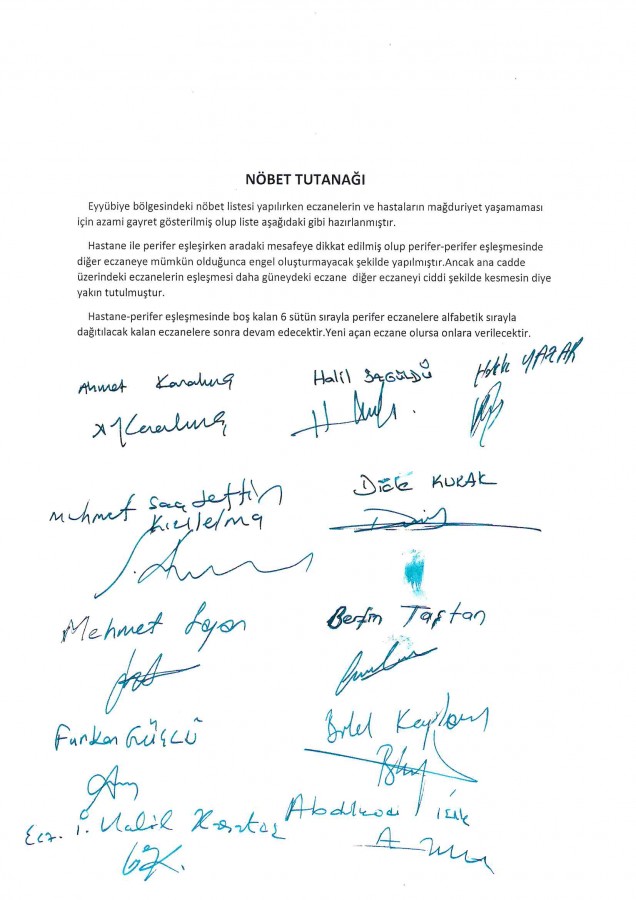 NÖBET TUTANAĞI
Eyyübiye bölgesindeki nöbet listesi yapılırken eczanelerin ve hastaların mağduriyet yaşamaması
için azami gayret gösterilmiş olup liste aşağıdaki gibi hazırlanmıştır.
Hastane ile perifer eşleşirken aradaki mesafeye dikkat edilmiş olup perifer-perifer eşleşmesinde
diğer eczaneye mümkün olduğunca engel oluşturmayacak şekilde yapılmıştır.Ancak ana cadde
üzerindeki eczanelerin eşleşmesi daha güneydeki eczane diğer eczaneyi ciddi şekilde kesmesin diye
yakın tutulmuştur.
Hastane-perifer eşleşmesinde boş kalan 6 sütün sırayla perifer eczanelere alfabetik sırayla
dağıtılacak kalan eczanelere sonra devam edecektir.Yeni açan eczane olursa onlara verilecektir.
Hakkı YAZAR
Ahmet Halil
Mehmet Kızılelma
Dicle KURAK
Mehmet
Berfin Taştan
Furkan GÜÇLÜ
Bilel
Ecz. İ. Halil